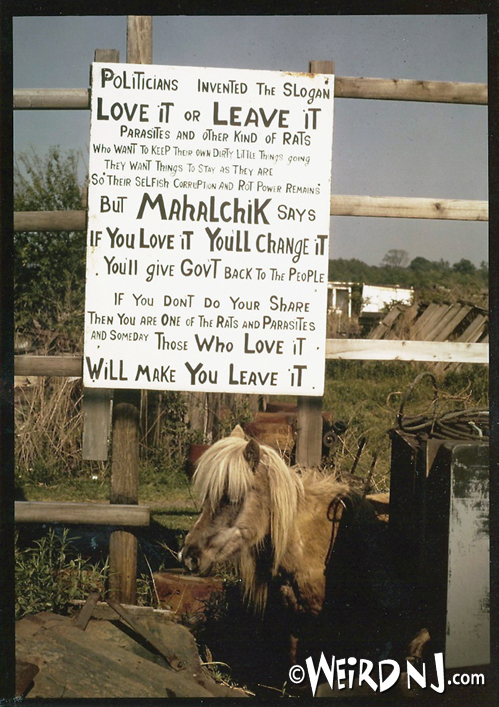 POLITICIANS INVENTED THE SLOGAN
LOVE IT OR LEAVE IT
PARASITES AND OTHER KIND OF RATS
WHO WANT TO KEEP THEIR OWN DIRTY LITTLE THINGS GOING
THEY WANT THINGS TO STAY AS THEY ARE
SO THEIR SELFISH CORRUPTION AND ROT POWER REMAINS
BUT MAHALCHIK SAYS
IF YOU LOVE IT YOU'LL CHANGE IT
YOU'LL GIVE GOV'T BACK TO THE PEOPLE
IF YOU DONT DO YOUR SHARE
THEN YOU ARE ONE OF THE RATS AND PARASITES
AND SOMEDAY THOSE WHO LOVE IT
WILL MAKE YOU LEAVE IT
©WEIRDNJ.com